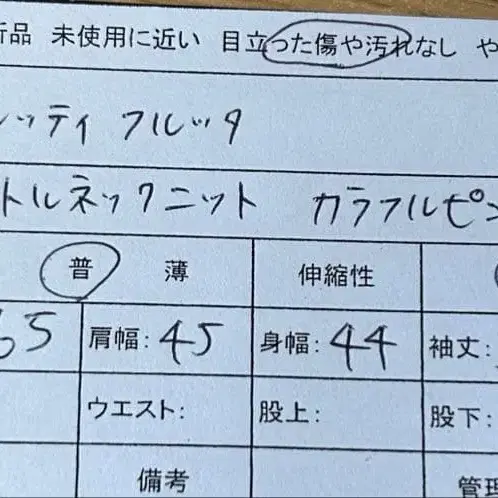 新品 未使用に近い 目立った傷や汚れなし や
ッティ フルッタ
トルネックニット カラフルピン
普 薄 伸縮性
65 肩幅: 45 身幅: 44 袖丈:
ウエスト: 股上: 股下:
備考 管理